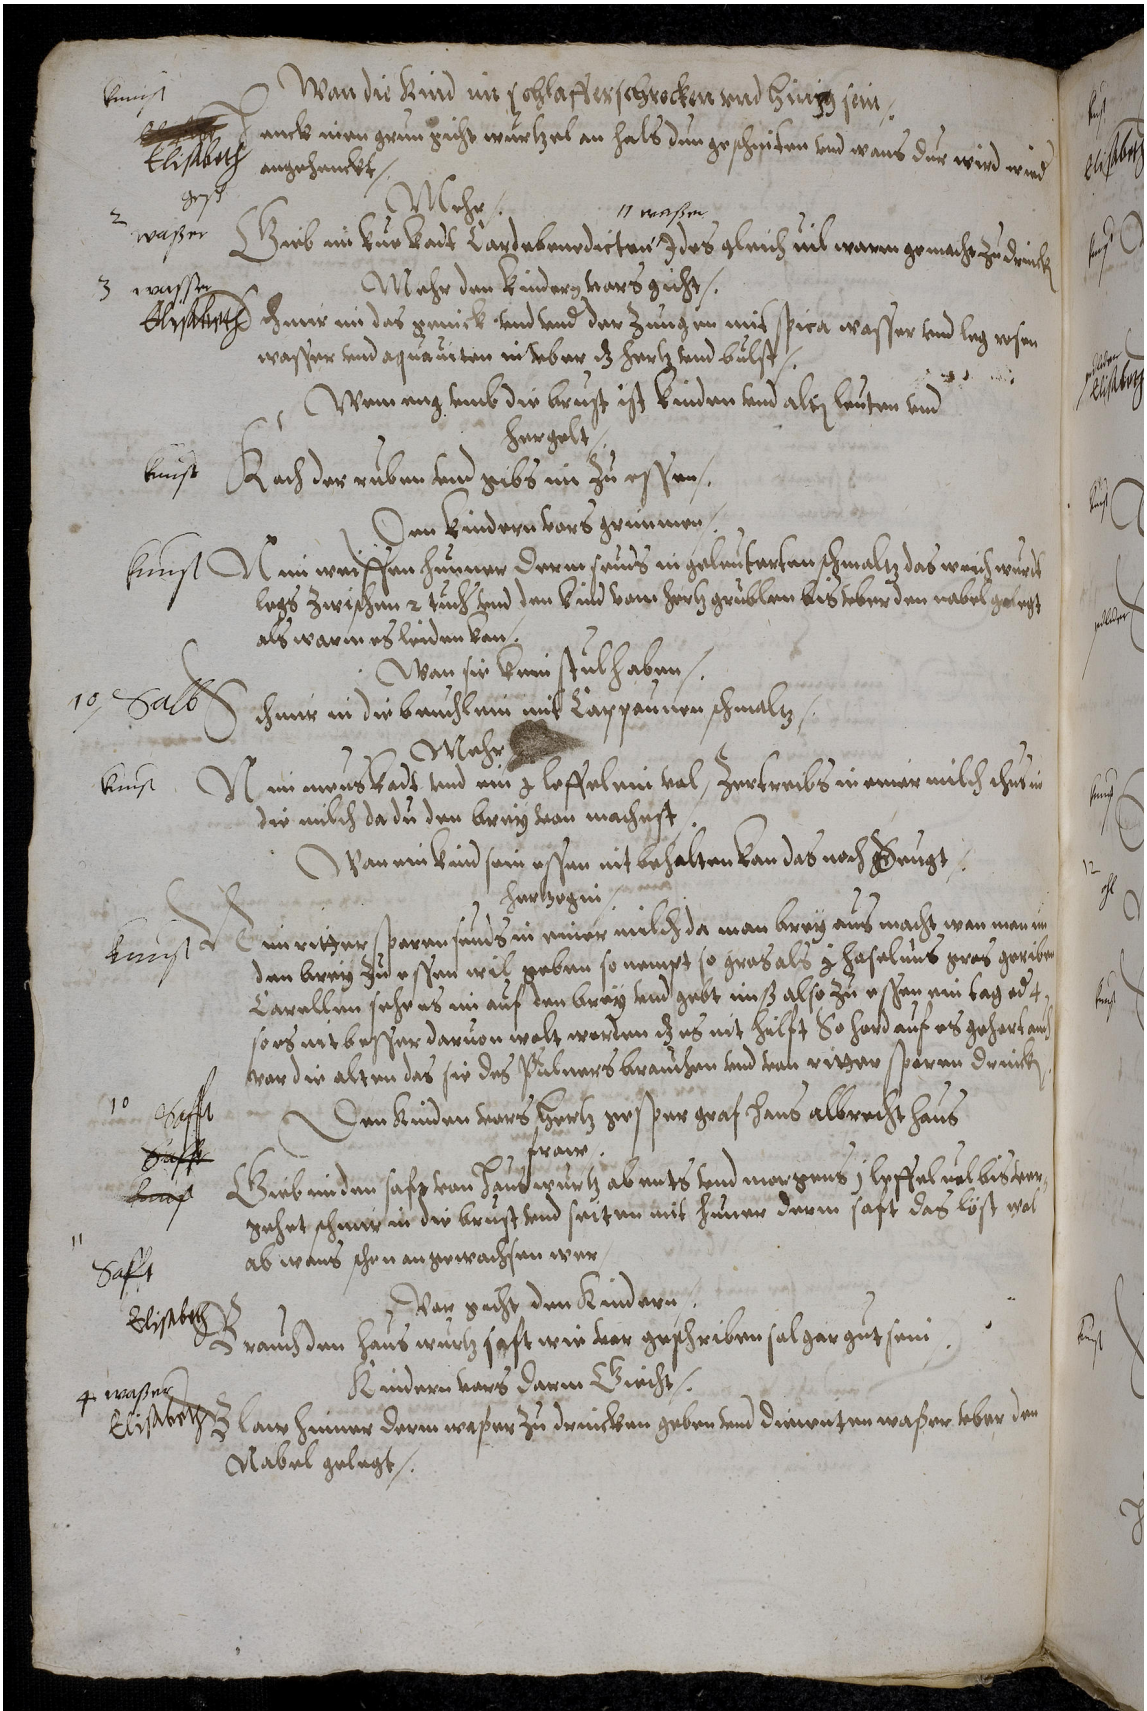 kunst
Wan die Kind im schlaff erschrocken vnd hinig sein /.
Elisabeth
Henck inen grun gicht wurtzel an hals dun geschniten vnd wans dur wird wied
angehenckt /
Mehr /.
2 waßer
11 waßer
Gieb im Cardebenedicten des gleich uil waren gemacht zu drincken
3 wasser
Mehr den kindern vors gicht /.
Elisabeth
Schmir in das genick vnd vnd der Zungen mit spica wasser vnd leg rosen
wasser vnd aquauiten in veber dz hertz vnd bulst /.
Wem eng vmb die brust ist kinden vnd alten leuten vnd
hergelt /.
kunst
Koch der ruben vnd gibs im zu essen /.
Den kindern vors grimmen /.
kunst
Nim weissen huner derm seuds in geleuterten schmaltz das weich wurdt
legs zwischen 2 tuch vnd den kind vom hertz grublen bis veber den nabel gelegt
als warm es leiden kan /.
Wan sie kein stul haben /.
10 Salb
Schmir in die beuchlein mit Cappaunen schmaltz /.
Mehr
kunst
Nim meus kadt vnd ein loffelein vol / Zertreibs in einer milch thus in
die milch da du den brey von machest /.
Wan ein kind sein essen nit behalten kan das noch Seugt /.
hertzogin
kunst
Nim ritter sporen seuds in einer milch da man brey aus macht wan man im
den brey zu essen wil geben so nempt so gros als j haselnus gros geriben
Carellen sehe es im auf den brey vnd gebt imß also zu essen ein tag od 4
so es nit besser daruon wolt werden dz es nit hilft So hord auf es gehert auch
vor die alten das sie des Pulvers brauchen vnd von ritter sporen drincken
10 Safft
Den Kinden vors hertz gesper graf hans albrecht haus
fraw /.
Safft
kunst
Gieb im den saft von haus wurtz abents vnd morgens j leffel uol bis ver
gehet schmir in die brust vnd seiten mit huner derm saft das löst wol
ab wans schon angewachsen wer /
11 Safft
Vor gicht den Kindern /.
Elisabeth
Brauch den haus wurtz saft wie vor geschriben sal gar gut sein /.
Kindern vors darm Giecht /.
4 waßer
Elisabeth
Blaw hiner derm waßer zu drincken geben vnd waßer veber den
Nabel gelegt /.